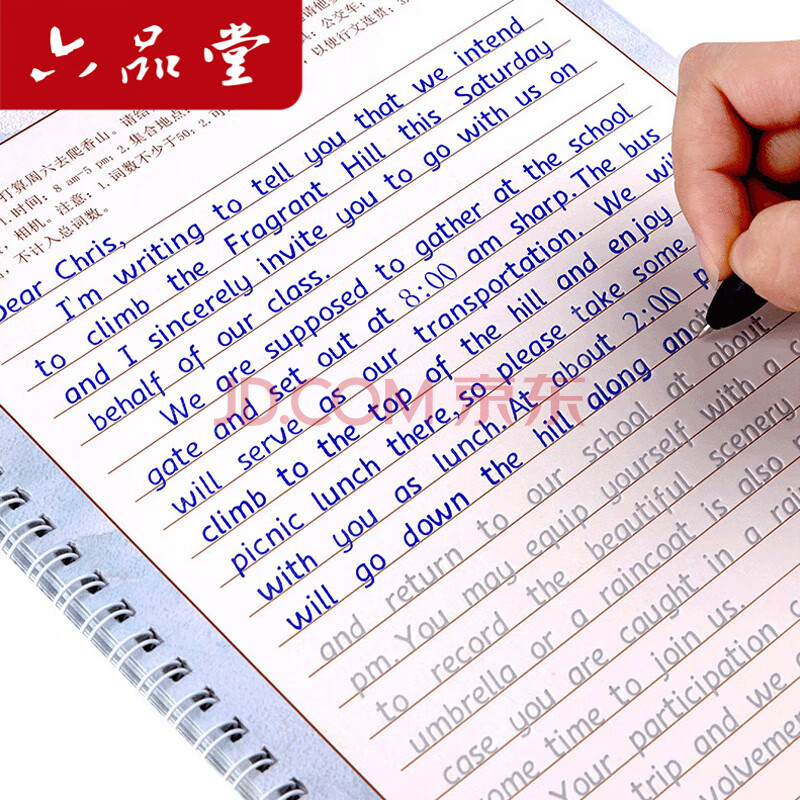 六品堂
打算周六去爬香山。请给
1.时间: 8 am-5 pm; 2.集合地点:
公交车;
相机。注意: 1.词数不少于50; 2.可
以使行文连贯; 3.
不计入总词数。
Dear Chris,
I'm writing to tell you that we intend
to climb the Fragrant Hill this Saturday
and I sincerely invite you to go with us on
behalf of our class.
We are supposed to gather at the school
gate and set out at 8:00 am sharp. The bus
will serve as our transportation. We will
climb to the top of the hill and enjoy
picnic lunch there, so please take some
with you as lunch. At about 2:00 p
will go down the hill along anoth
and return to our school at about
pm. You may equip yourself with a c
to record the beautiful scenery
umbrella or a raincoat is also
case you are caught in a rai
some time to join us.
Your participation
trip and we
volvemen
JD.COM 京东